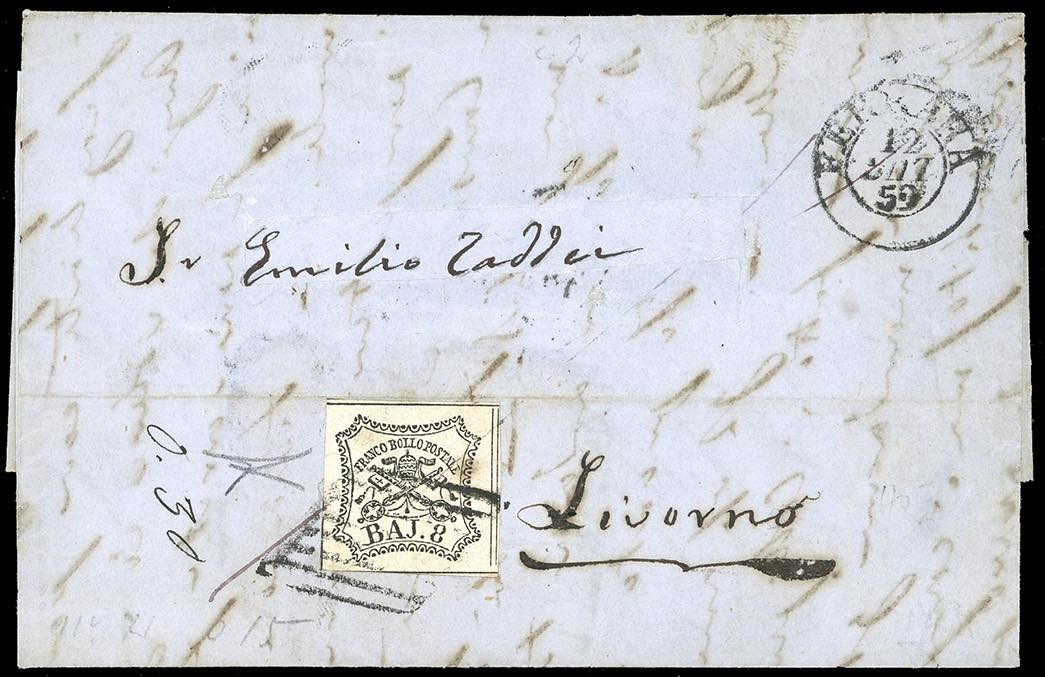 FERRARA
12
OTT
59
Sr Emilio Taddei
FRANCO BOLLO POSTALE
BAJ. 8
Livorno